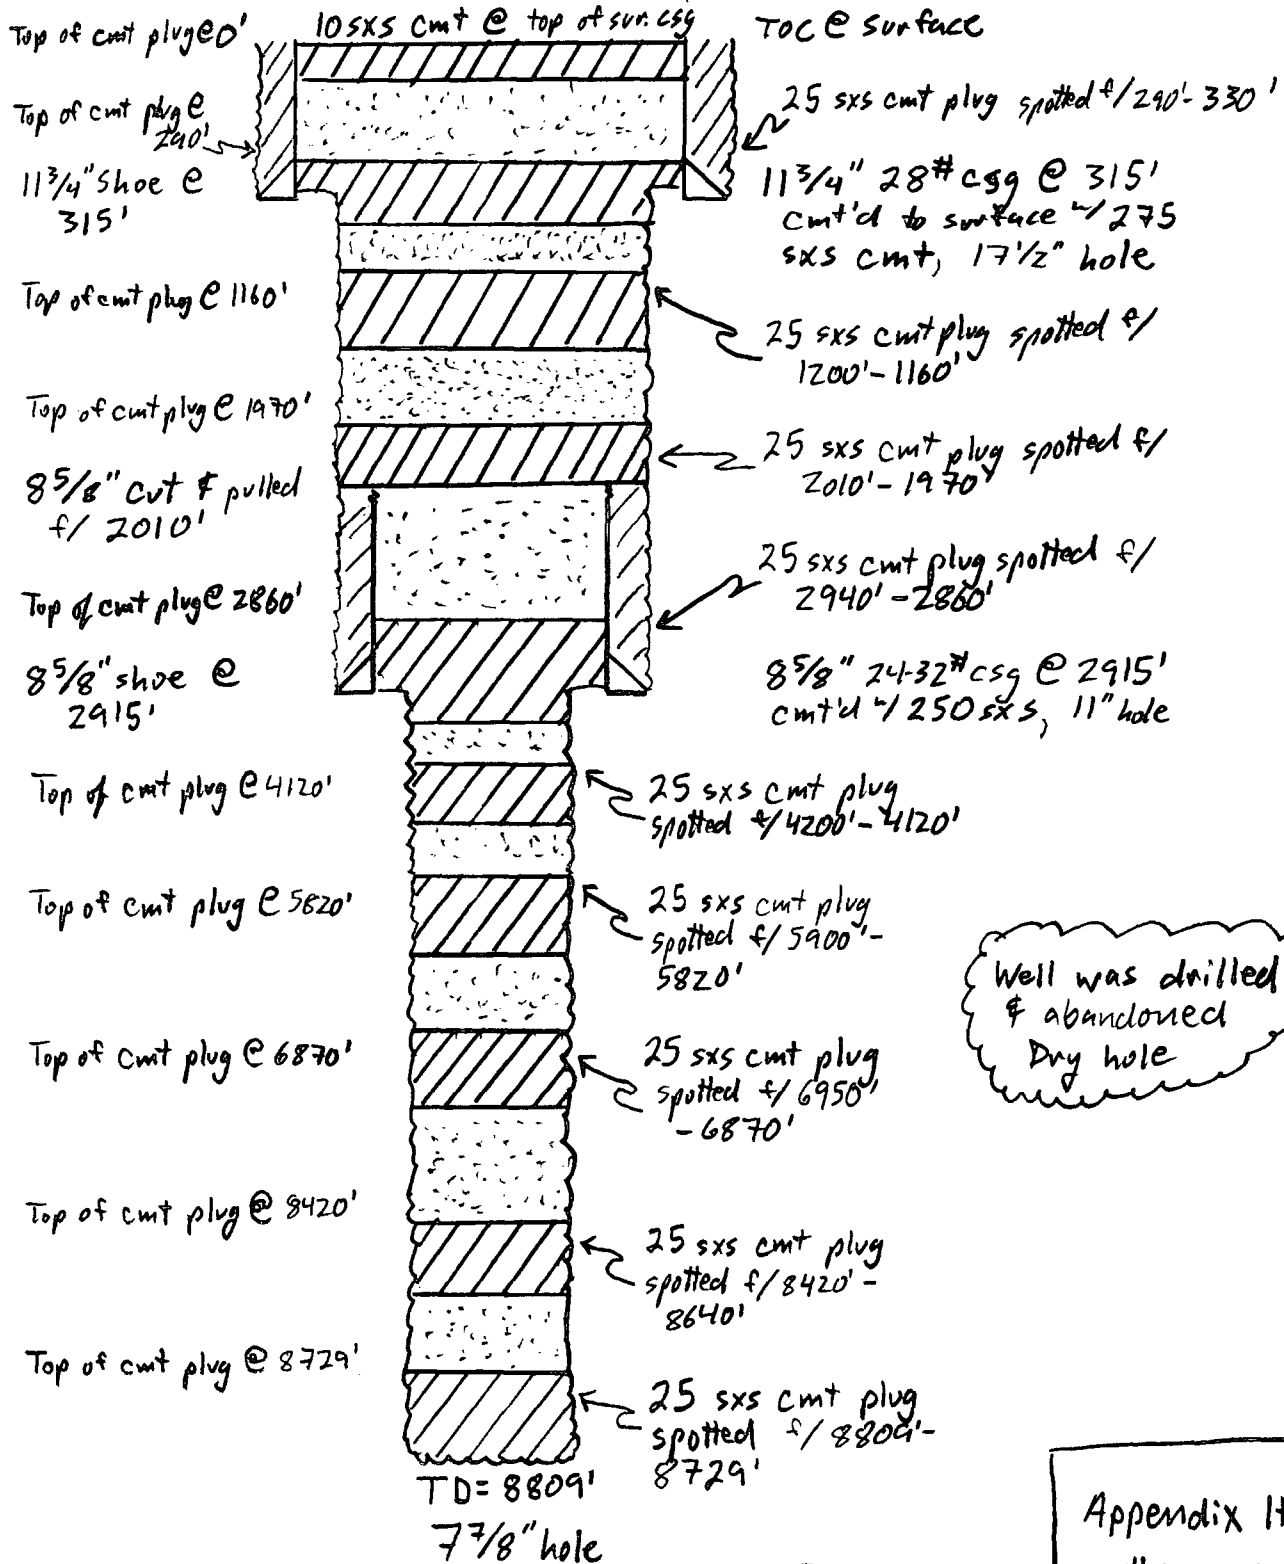 Top of cmt plug @ 0'
10 sxs cmt @ top of sur. csg
TOC @ surface
Top of cmt plug @
290'
25 sxs cmt plug spotted f/ 290'-330'
11 3/4" shoe @
315'
11 3/4" 28# csg @ 315'
cmt'd to surface w/ 275
sxs cmt, 17 1/2" hole
Top of cmt plug @ 1160'
25 sxs cmt plug spotted f/
1200'-1160'
Top of cmt plug @ 1970'
25 sxs cmt plug spotted f/
2010'-1970'
8 5/8" cut & pulled
f/ 2010'
25 sxs cmt plug spotted f/
2940'-2860'
Top of cmt plug @ 2860'
8 5/8" shoe @
2915'
8 5/8" 24-32# csg @ 2915'
cmt'd w/ 250 sxs, 11" hole
Top of cmt plug @ 4120'
25 sxs cmt plug
spotted f/ 4200'-4120'
Top of cmt plug @ 5820'
25 sxs cmt plug
spotted f/ 5900'-
5820'
Well was drilled
& abandoned
Dry hole
Top of cmt plug @ 6870'
25 sxs cmt plug
spotted f/ 6950'
-6870'
Top of cmt plug @ 8420'
25 sxs cmt plug
spotted f/ 8420'-
8640'
Top of cmt plug @ 8729'
25 sxs cmt plug
spotted f/ 8809'-
8729'
TD= 8809'
7 7/8" hole
Appendix